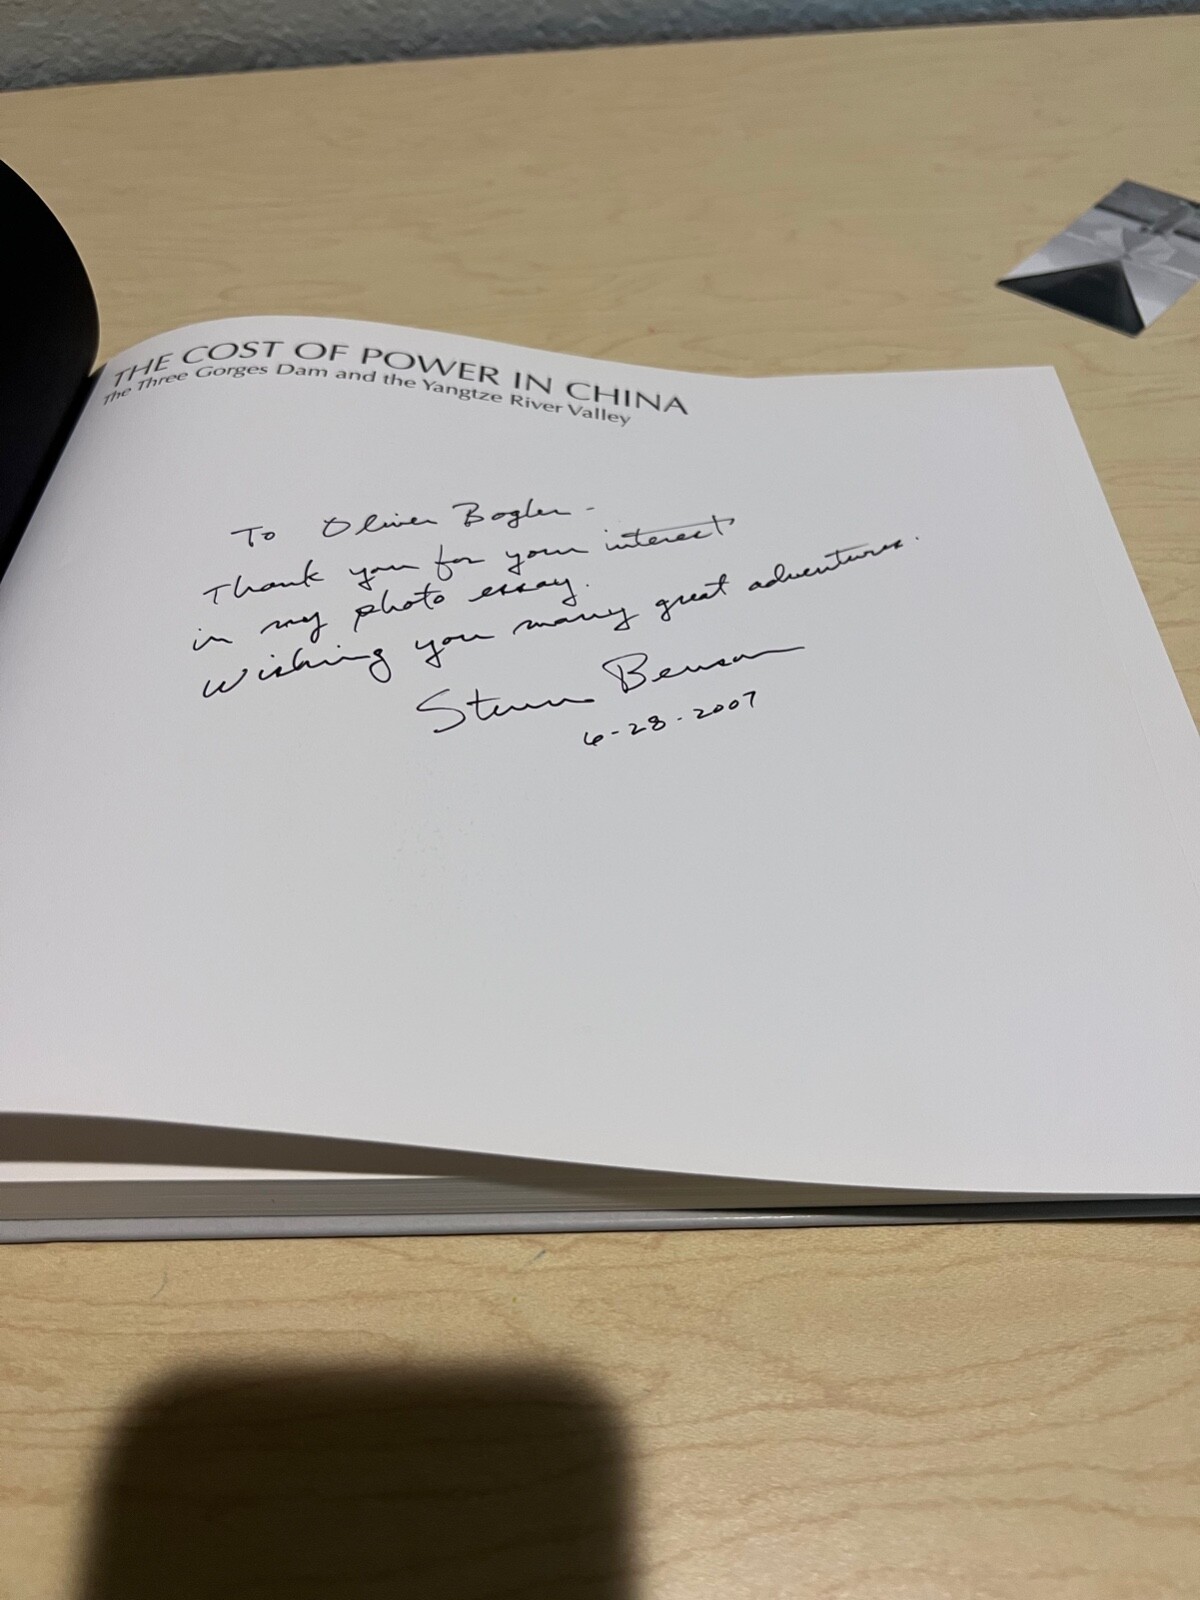 THE COST OF POWER IN CHINA
The Three Gorges Dam and the Yangtze River Valley
To Oliver Bogler -
Thank you for your interest
in my photo essay.
Wishing you many great adventures.
Steven Benson
6-28-2007